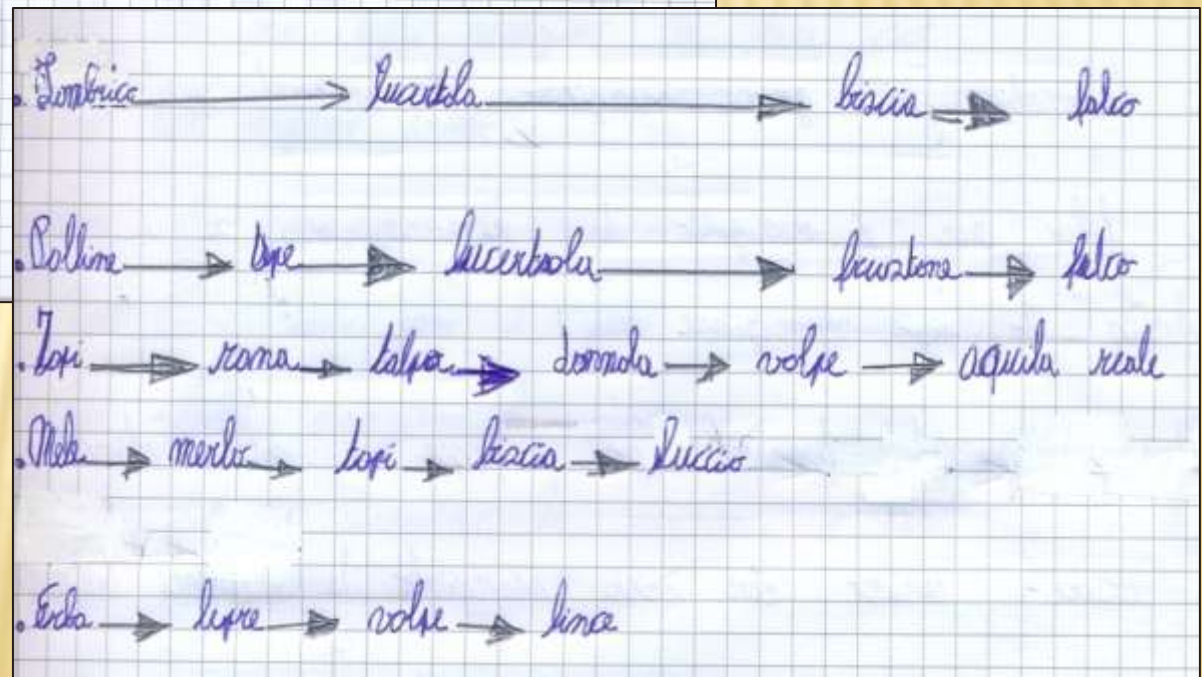 . Lombrico → lucertola → biscia → falco
. Polline → ape → lucertola → frustone → falco
. Topi → rana → talpa → donnola → volpe → aquila reale
. Mele → merlo → topi → biscia → luccio
. Erba → lepre → volpe → lince